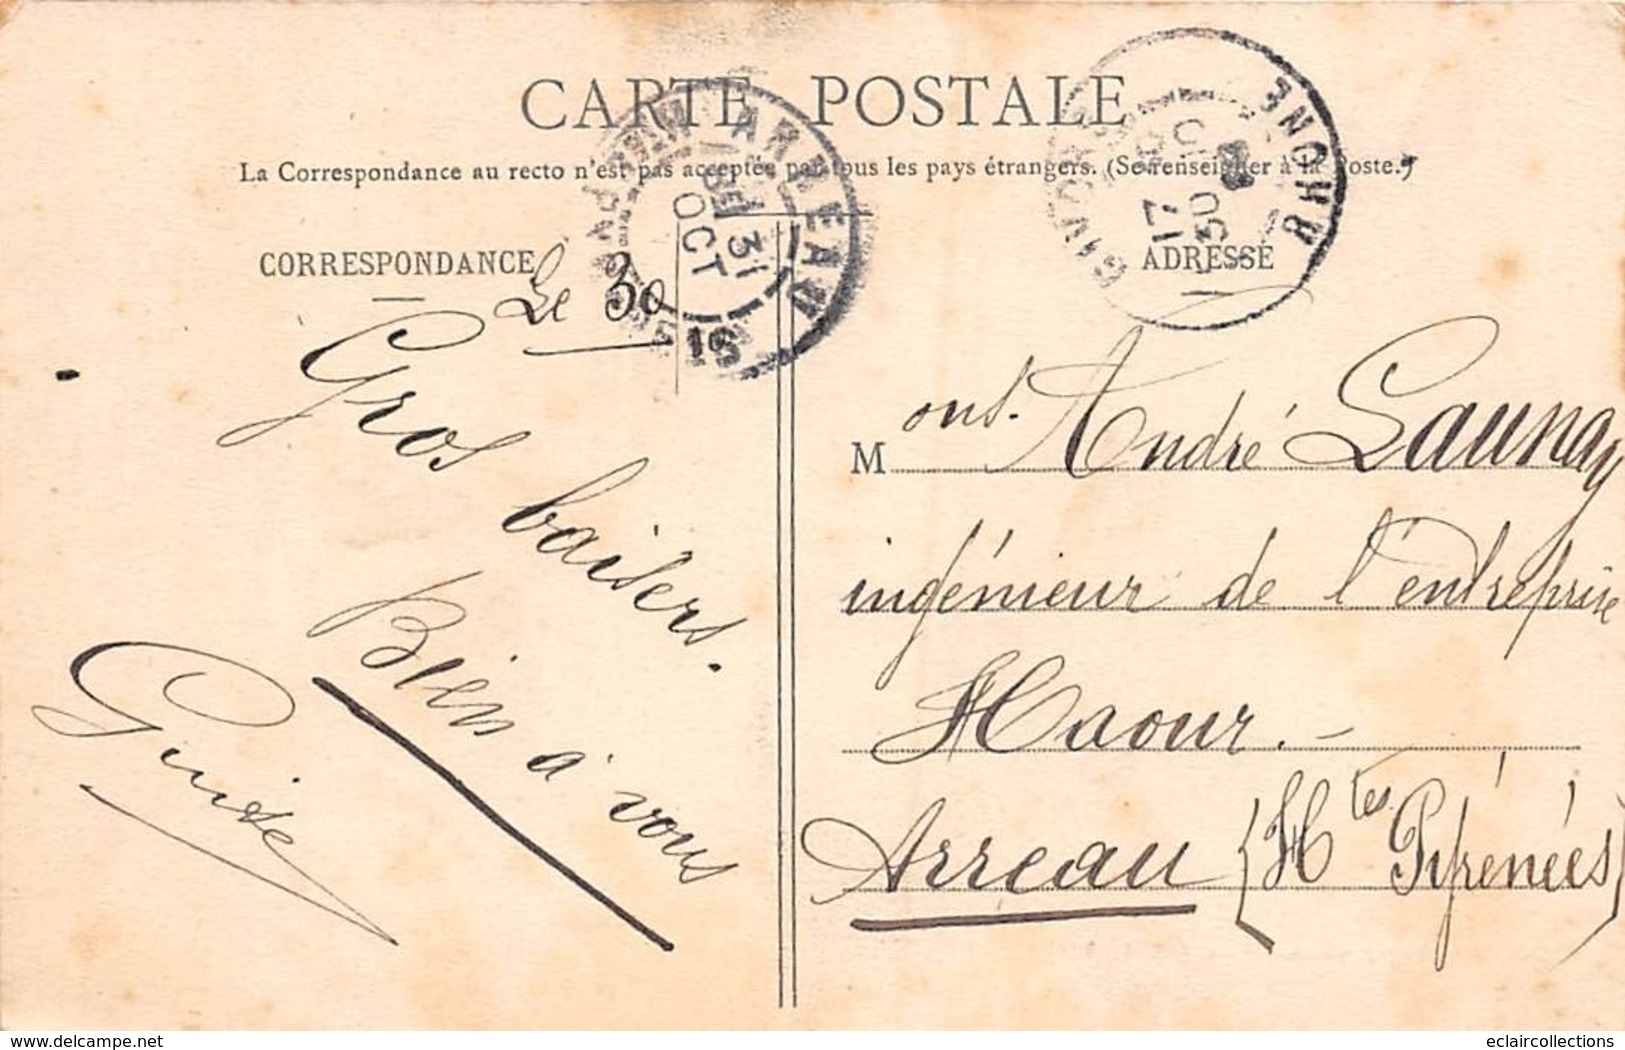 CARTE POSTALE
La Correspondance au recto n'est pas acceptée par tous les pays étrangers. (Se renseigner à la Poste.)
CORRESPONDANCE
Le 30
Gros baisers.
Bien à vous
ARREAU
31
OCT
RHONE
17
30
ADRESSE
Mons. André Launay
ingénieur de l'entreprise
Haour.-
Arreau (Htes Pyrénées)
delcampe.net
eclaircollections